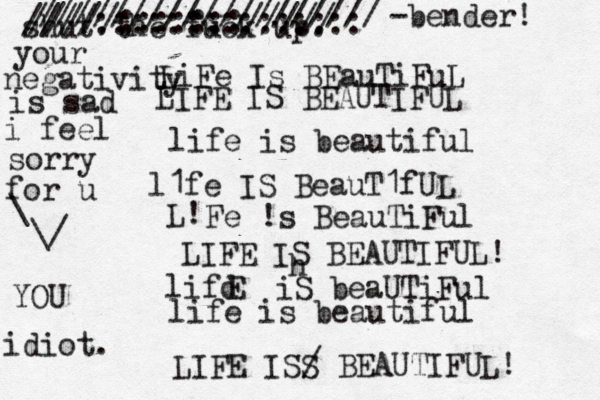 shut the fuck up... -bender!
your
negativity
is sad
i feel
sorry
for u
YOU
idiot.
LiFe Is BEauTiFuL
LIFE IS BEAUTIFUL
life is beautiful
l1fe IS BeauT1fUL
L!Fe !s BeauTiFul
LIFE IS BEAUTIFUL!
lifE iS beaUTiFul
life is beautiful
LIFE ISS BEAUTIFUL!